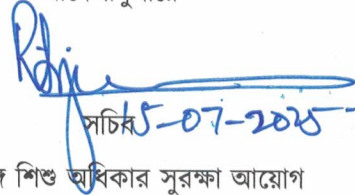 সচিব
15-07-2025
শিশু অধিকার সুরক্ষা আয়োগ